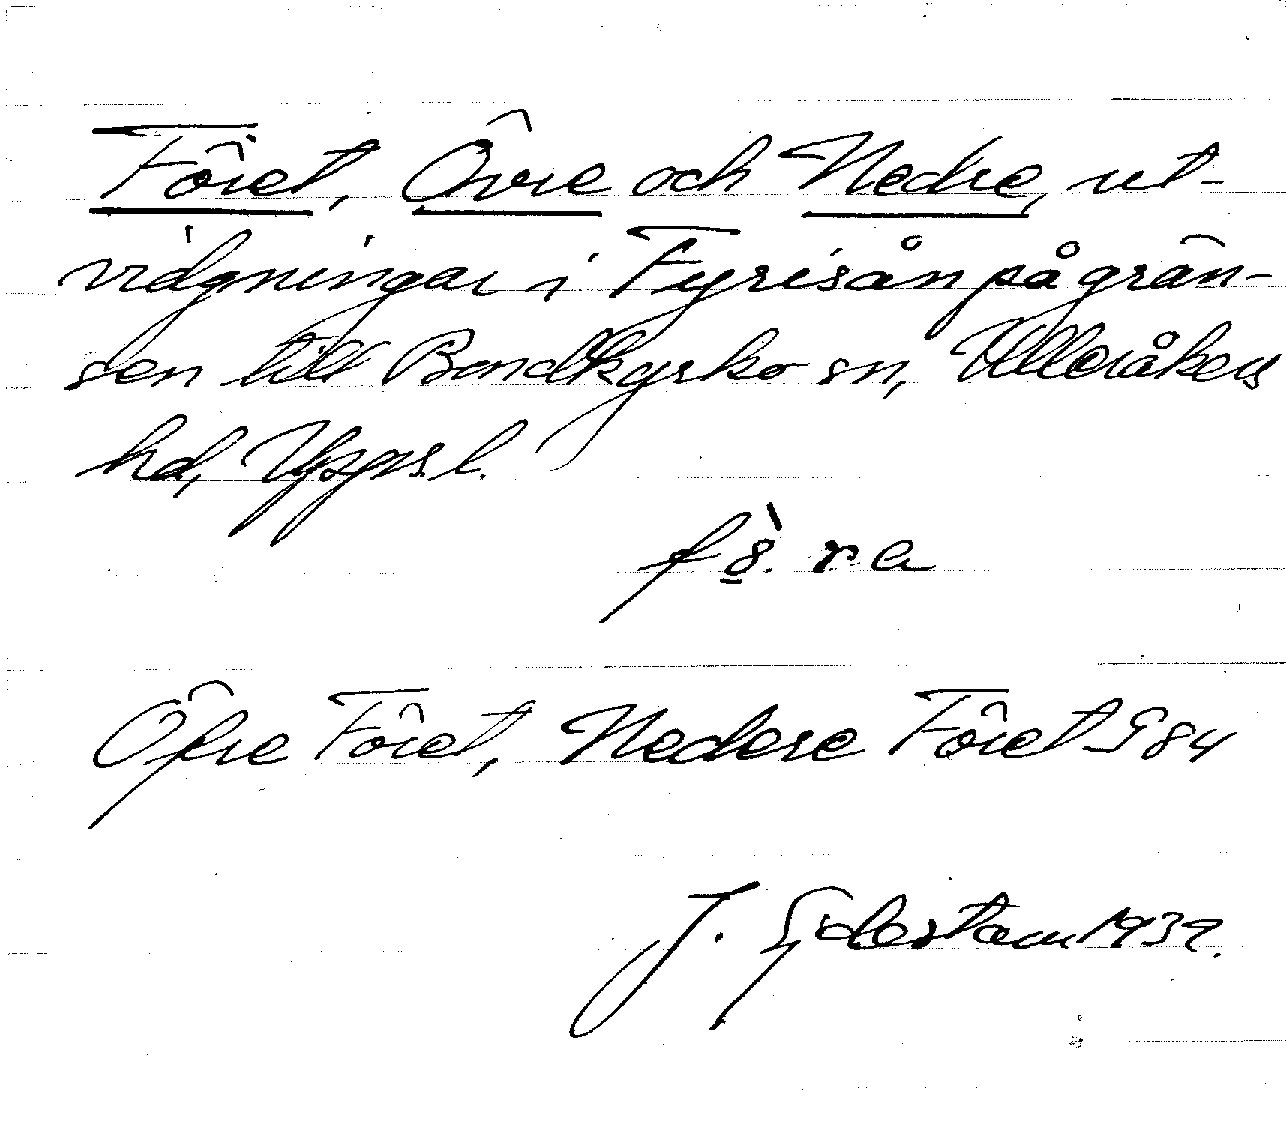 Föret, Övre och Nedre, ut-
vidgningar i Fyrisån på grän-
sen till Bondkyrko sn, Ulleråkers
hd, Upps. l.
fö̀. ra
Öfre Föret, Nedere Föret G 84
J. 1939.